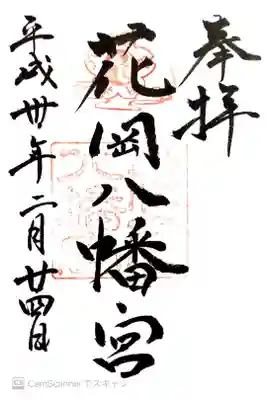 奉拝
花岡八幡宮
平成卅年二月廿四日
CamScanner でスキャン